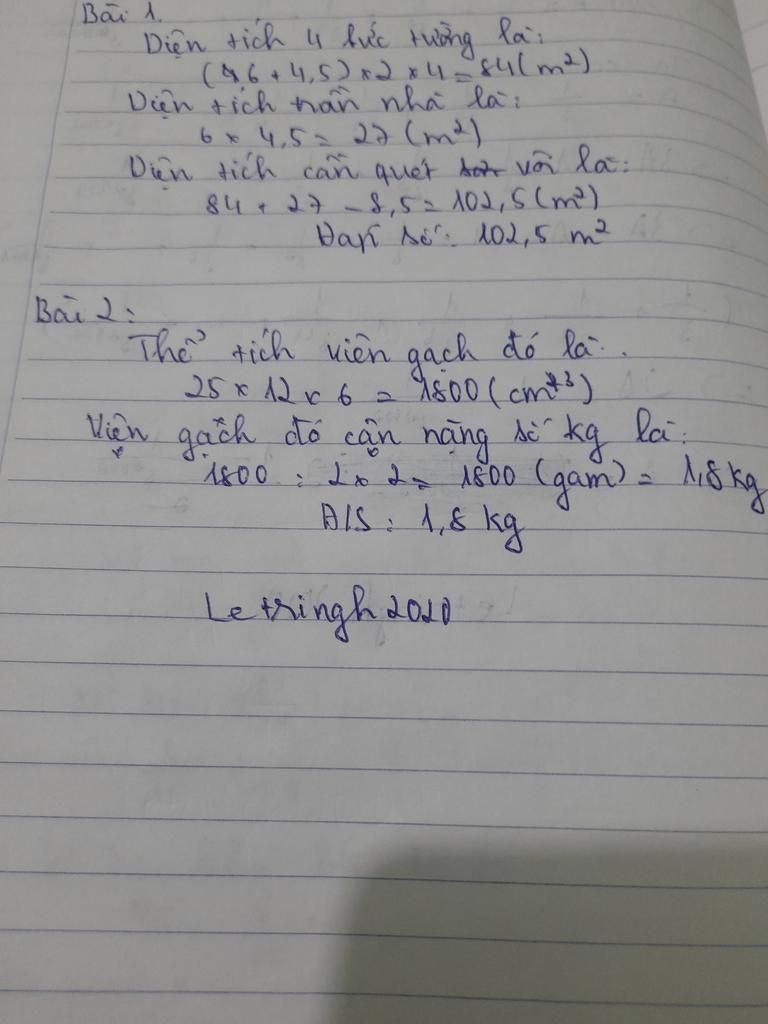 Bài 1.
Diện tích 4 bức tường là:
(6 + 4,5) x 2 x 4 = 84 (m²)
Diện tích trần nhà là:
6 x 4,5 = 27 (m²)
Diện tích cần quét vôi là:
84 + 27 - 8,5 = 102,5 (m²)
Đáp số: 102,5 m²
Bài 2:
Thể tích viên gạch đó là:
25 x 12 x 6 = 1800 (cm³)
Viện gạch đó cận nặng số kg là:
1800 : 2 x 2 = 1800 (gam) = 1,8 kg
Đ/S : 1,8 kg
Letringh2020